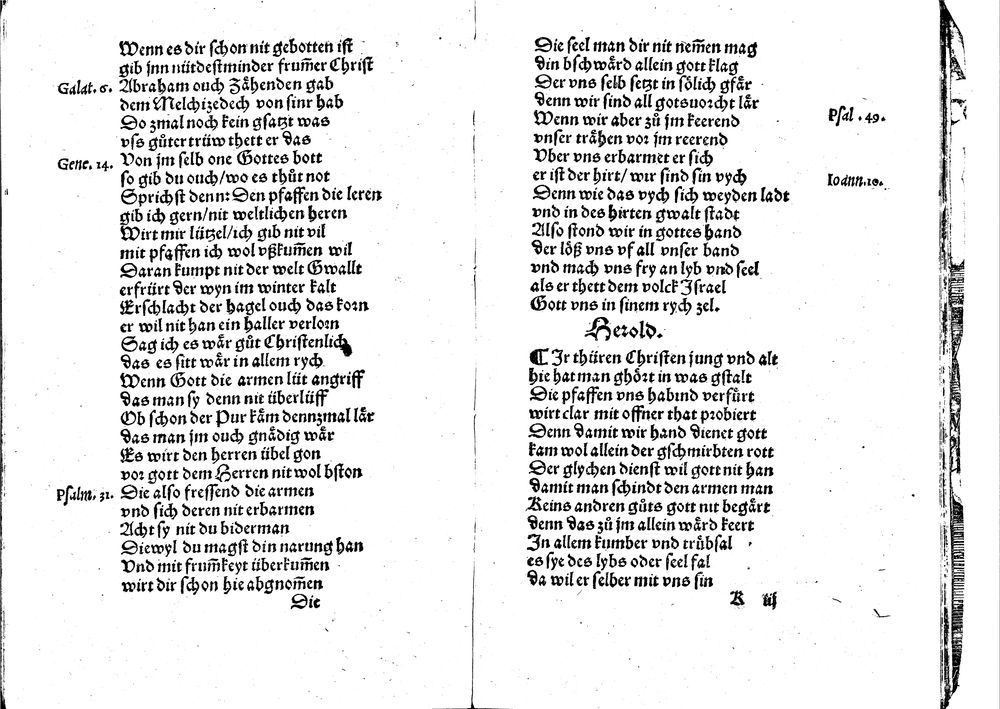 Wenn es dir schon nit gebotten ist
gib jnn nütdestminder frum̃er Christ
Galat. 6. Abraham ouch Zähenden gab
dem Melchizedech von sinr hab
Do zmal noch kein gsatzt was
vss gůter trüw thett er das
Gene. 14. Von jm selb one Gottes bott
so gib du ouch/wo es thůt not
Sprichst denn: Den pfaffen die leren
gib ich gern/nit weltlichen heren
Wirt mir lützel/ich gib nit vil
mit pfaffen ich wol vßkum̃en wil
Daran kumpt nit der welt Gwallt
erfrürt der wyn im winter kalt
Erschlacht der hagel ouch das korn
er wil nit han ein haller verlorn
Sag ich es wär gůt Christenlich
das es sitt wär in allem rych
Wenn Gott die armen lüt angriff
das man sy denn nit überlüff
Ob schon der Pur käm dennzmal lär
das man jm ouch gnädig wär
Es wirt den herren übel gon
vor gott dem Herren nit wol bston
Psalm. 31. Die also fressend die armen
vnd sich deren nit erbarmen
Acht sy nit du biderman
Diewyl du magst din narung han
Vnd mit frum̃keyt überkum̃en
wirt dir schon hie abgnom̃en
Die
Die seel man dir nit nem̃en mag
din bschwärd allein gott klag
Der vns selb setzt in sölich gfär
denn wir sind all gotsuorcht lär
Wenn wir aber zů jm keerend
Psal. 49.
vnser trähen vor jm reerend
Vber vns erbarmet er sich
er ist der hirt/wir sind sin vych
Ioann. 10.
Denn wie das vych sich weyden ladt
vnd in des hirten gwalt stadt
Also stond wir in gottes hand
der löß vns vf all vnser band
vnd mach vns fry an lyb vnd seel
als er thett dem volck Israel
Gott vns in sinem rych zel.
Herold.
¶ Ir thüren Christen jung vnd alt
hie hat man ghört in was gstalt
Die pfaffen vns habind verfürt
wirt clar mit offner that probiert
Denn damit wir hand dienet gott
kam wol allein der gschmirbten rott
Der glychen dienst wil gott nit han
damit man schindt den armen man
Keins andren gůts gott nit begärt
denn das zů jm allein wärd keert
In allem kumber vnd trübsal
es sye des lybs oder seel fal
da wil er selber mit vns sin
K iij